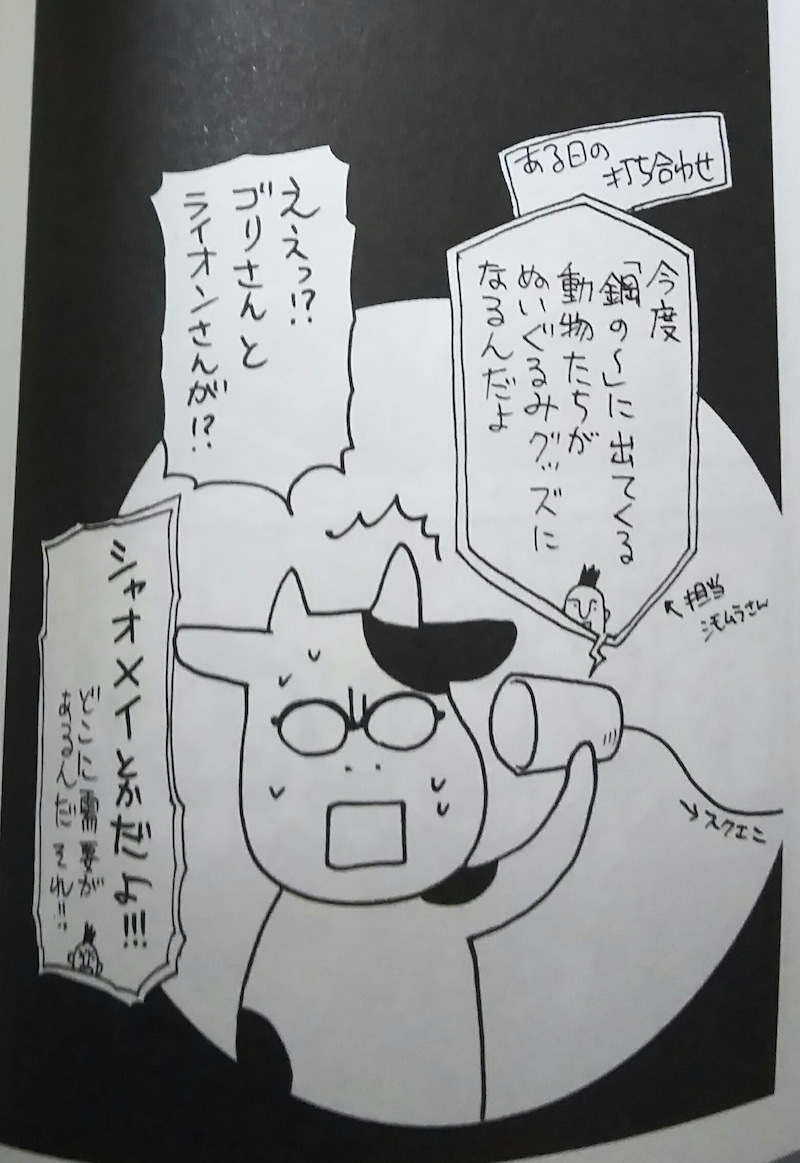 ある日の
打ち合わせ
今度
「鋼の〜」に出てくる
動物たちが
ぬいぐるみグッズに
なるんだよ
←担当
シモムラさん
ええっ!?
ゴリさんと
ライオンさんが!?
→スクエニ
シャオメイとかだよ!!!
どこに需要が
あるんだそれ!!